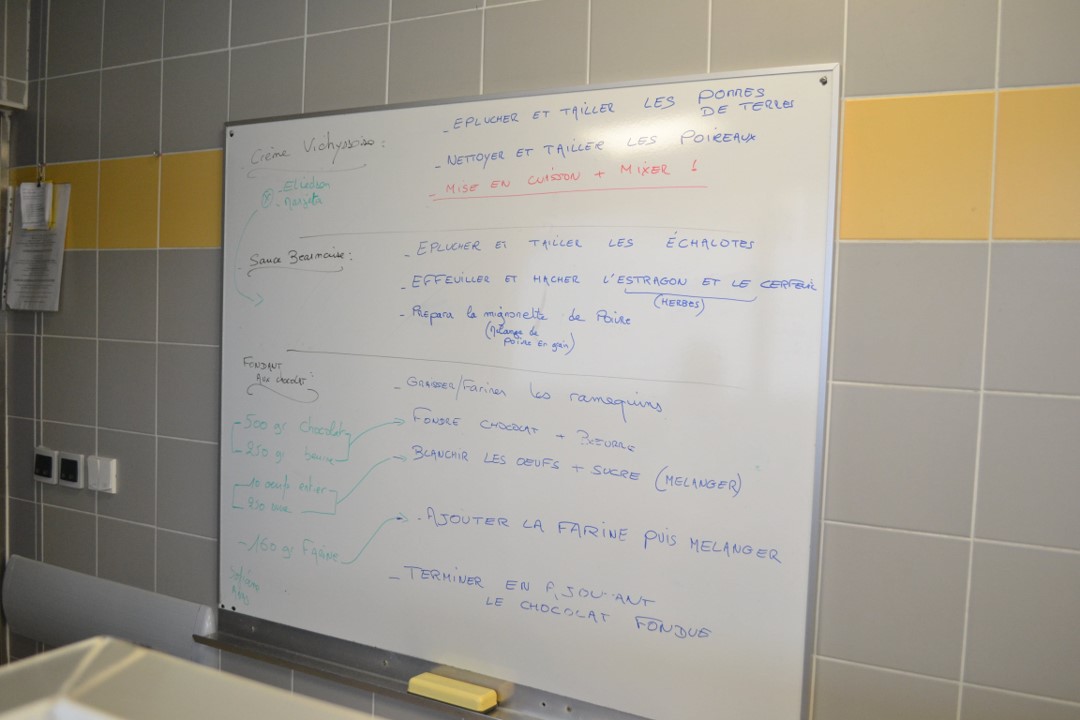 Crème Vichyssoise :
- EPLUCHER ET TAILLER LES POMMES
DE TERRES
- NETTOYER ET TAILLER LES POIREAUX
- MISE EN CUISSON + MIXER !
Sauce Bearnaise :
- EPLUCHER ET TAILLER LES ÉCHALOTES
- EFFEUILLER ET HACHER L'ESTRAGON ET LE CERFEUIL
(HERBES)
- Prepara la mignonette de Poivre
(Mélange de
poivre en grain)
FONDANT
Aux chocolat :
- GRAISSER/Fariner les ramequins
- 500 gr Chocolat
- 250 gr beurre
- FONDRE CHOCOLAT + BEURRE
10 oeufs entier
250 sucre
- BLANCHIR LES OEUFS + SUCRE (MELANGER)
- 160 gr Farine
- AJOUTER LA FARINE PUIS MELANGER
- TERMINER EN AJOUTANT
LE CHOCOLAT FONDUE